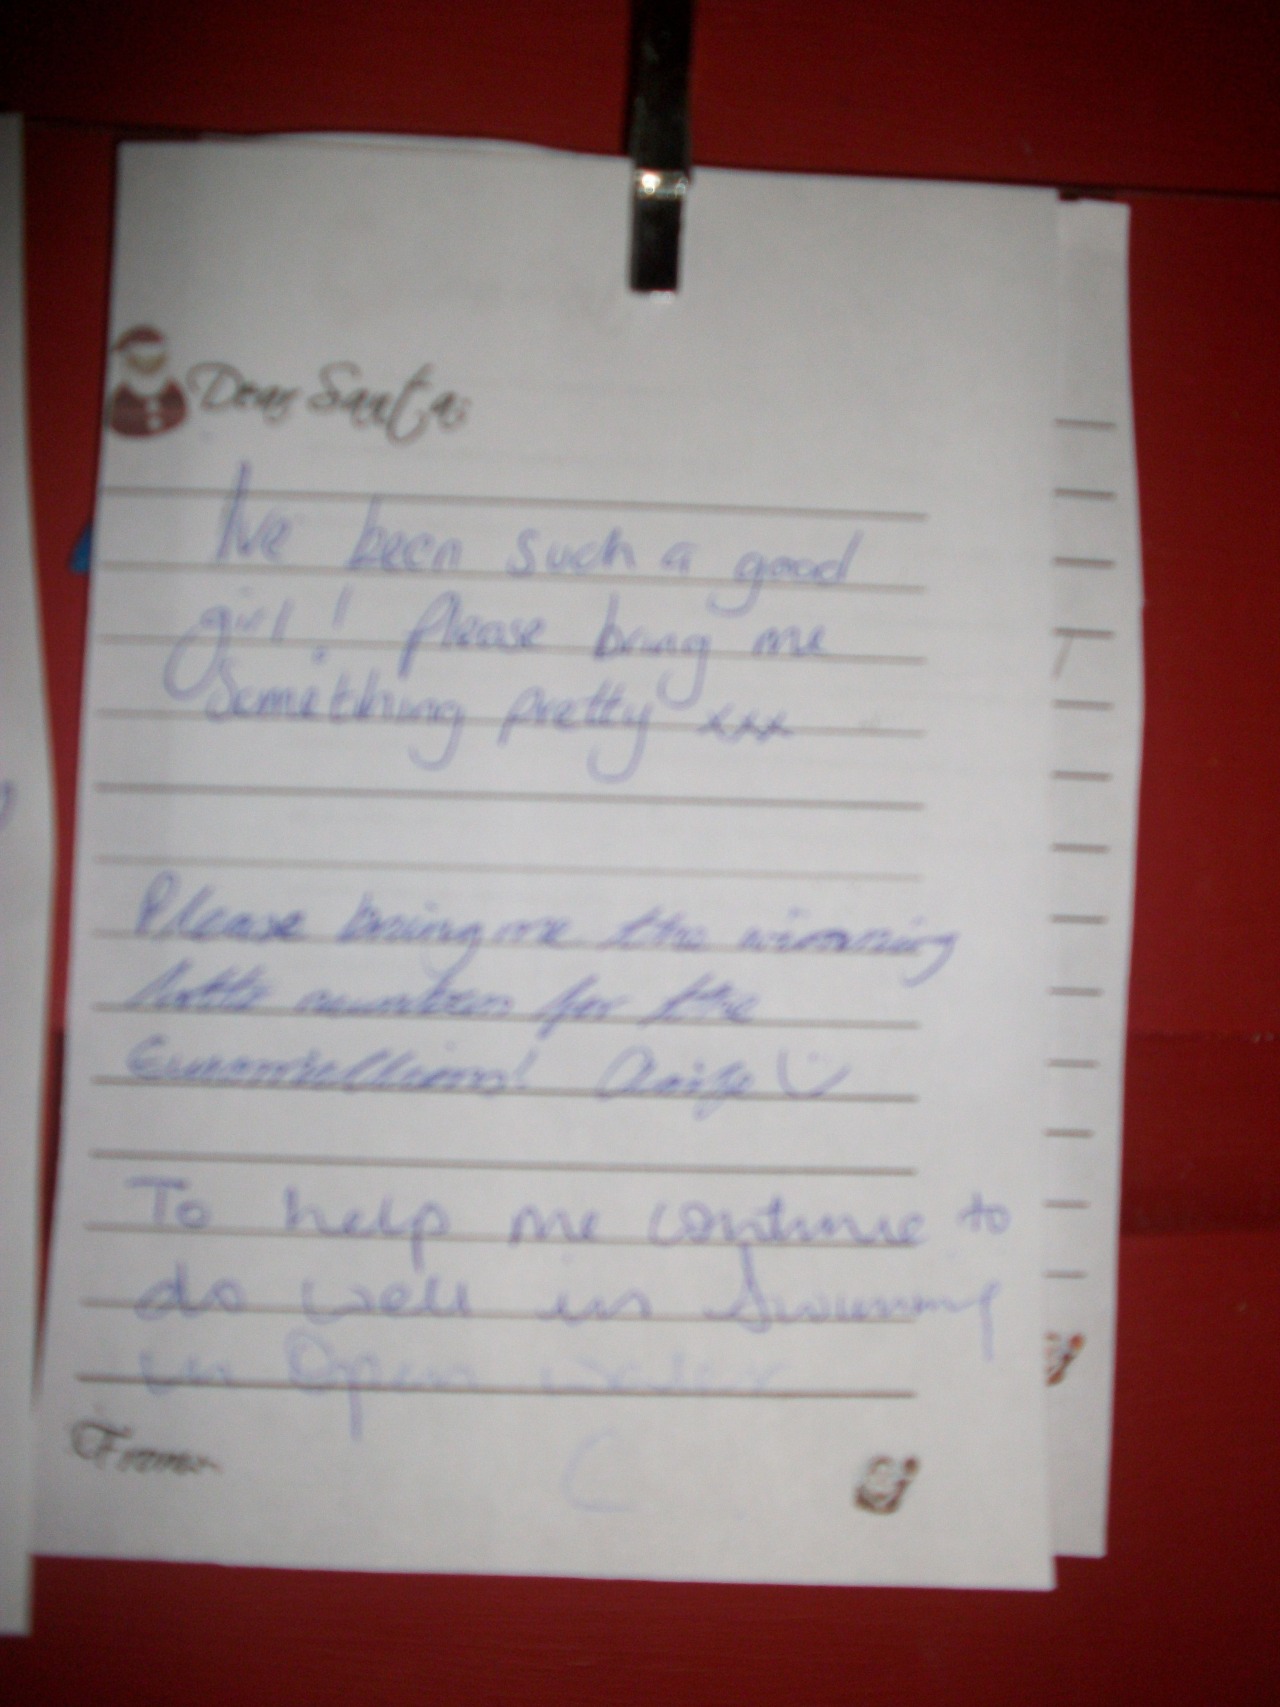 Dear Santa:
I've been such a good
girl! Please bring me
something pretty xxx
Please bring me the winning
lotto numbers for the
Euromillions!
To help me continue to
do well in Swimming
in Open water
From